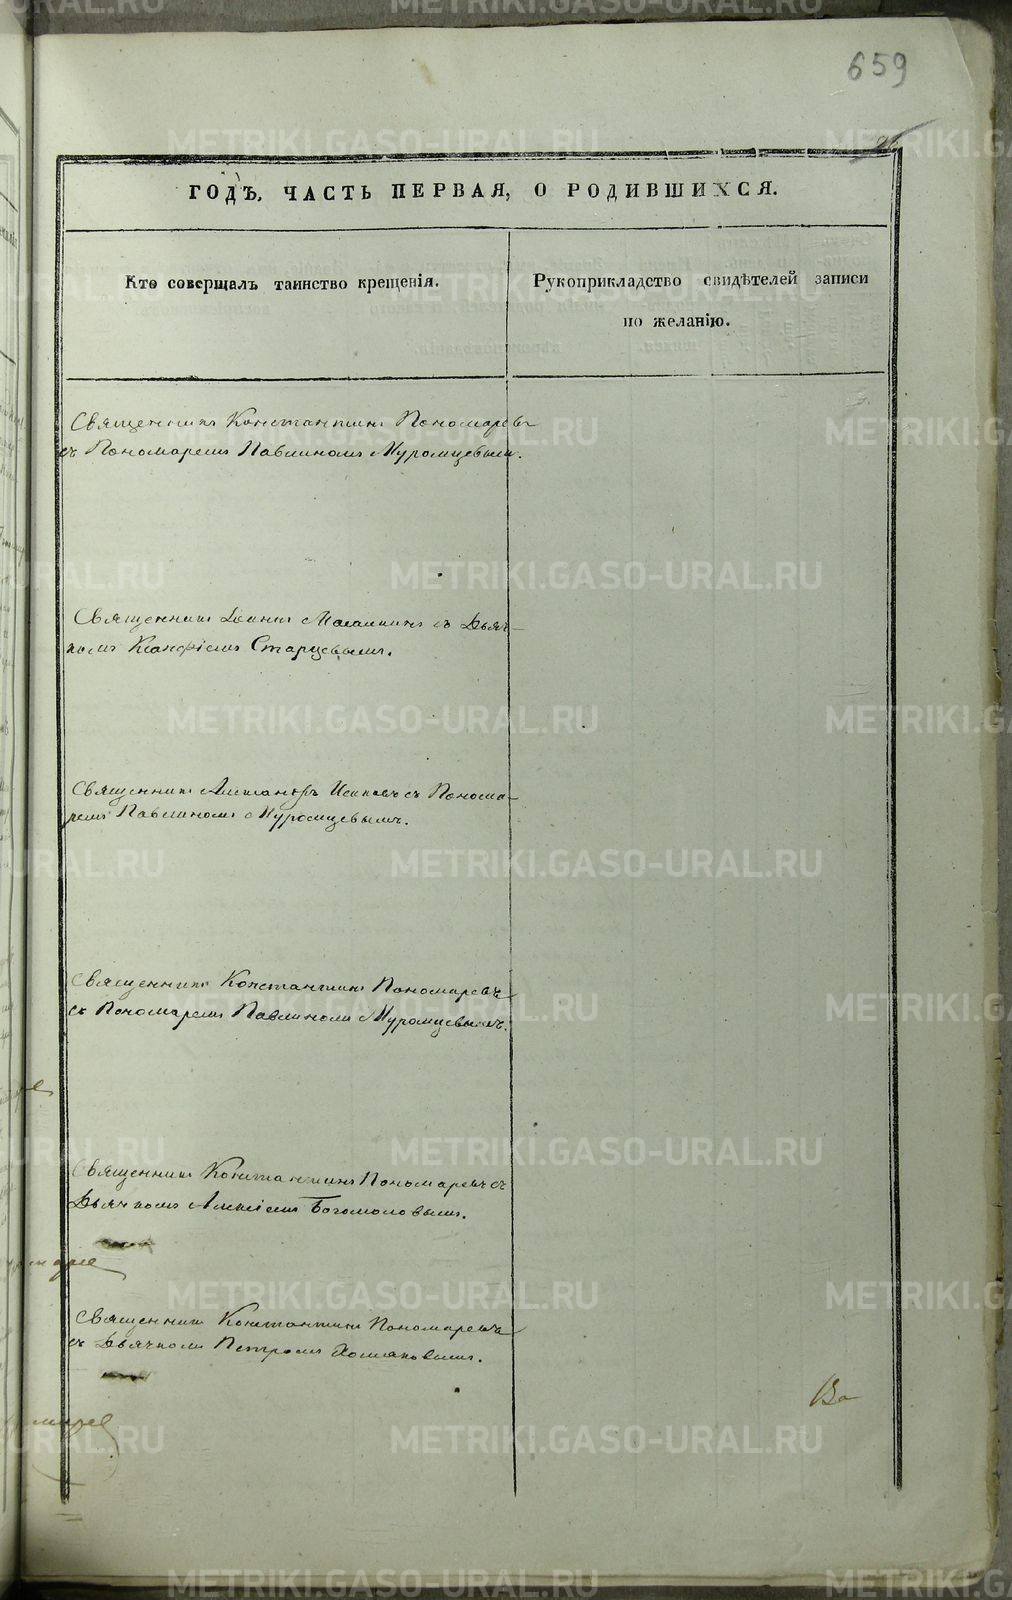 659
ГОДЪ, ЧАСТЬ ПЕРВАЯ, О РОДИВШИХСЯ.
Кто совершалъ таинство крещенія.
Рукоприкладство свидѣтелей записи
по желанію.
Священникъ Константинъ Пономаревъ
съ Пономаремъ Павлиномъ Муромцевымъ.
Священникъ Іоаннъ с Дьяч-
комъ Старцевымъ.
Священникъ Александръ съ Понома-
ремъ Павлиномъ Муромцевымъ.
Священникъ Константинъ Пономаревъ
съ Пономаремъ Павлиномъ Муромцевымъ.
Священникъ Константинъ Пономаревъ съ
Дьячкомъ Алексіемъ Богомоловымъ.
Священникъ Константинъ Пономаревъ
съ Дьячкомъ Петромъ Хомяковымъ.
METRIKI.GASO-URAL.RU